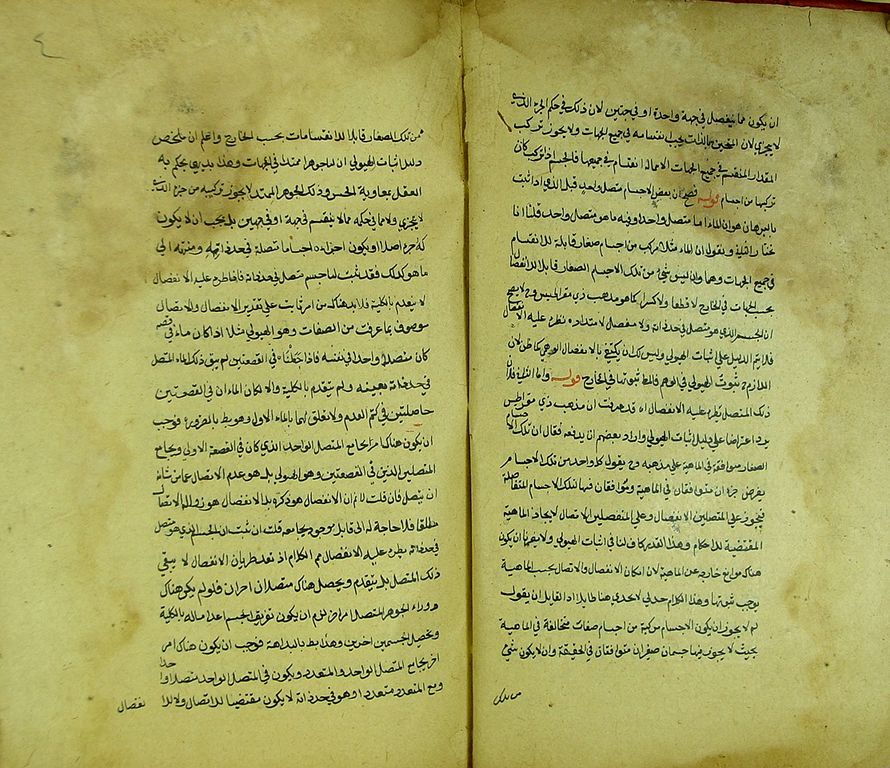 ان يكون مما ينفصل في جهة واحدة او في جهتين لان ذلك في حكم الجزء الذي
لا يتجزى لان المتحيز بالذات يجب انقسامه في جميع الجهات ولا يجوز تركيب
المقدار المنقسم في جميع الجهات الا مما له انقسام في جميعها فالجسم اذا تركب كان
تركبها من اجسام قوله فصح ان بعض الاجسام متصل واحد قيل الذي اذا ثبت
بالبرهان هو ان الماء اما متصل واحد او فيه ما هو متصل واحد قلنا انا
نختار الثانية ونقول ان الماء مثلا مركب من اجسام صغار قابلة للانقسام
في جميع الجهات وهما وان ليس شئ من تلك الاجسام الصغار قابلا للانفصال
بحسب الجهات في الخارج لا قطعا ولا كسرا كما هو مذهب ذي مقراطيس وح لا يصح
ان الجسم الذي هو متصل في حد ذاته ولا مفصل لامتداده نطرء عليه الانفصال
فلا يتم الدليل على اثبات الهيولى وليس لك ان تكتفي بالانفصال الوهمي كما ظن لان
اللازم ثبوت الهيولى في الوهم فالمط ثبوتها في الخارج قوله واما الثانية فلان
ذلك المتصل يطرء عليه الانفصال اه قد عرفت ان مذهب ذي مقراطيس
يرد اعتراضا على دليل اثبات الهيولى واراد بعضهم ان يدفعه فقال ان تلك الاجسام
الصغار متوافقة في الماهية على مذهبه وح نقول كل واحد من تلك الاجسام
يفرض جزء ان متوافقان في الماهية وموافقان فيها لتلك الاجسام المنفاصلة
فيجوز على المتصلين الانفصال وعلى المنفصلين الاتصال لايجاد الماهية
المقتضية للاحكام وهذا القدر كاف لنا في اثبات الهيولى ولا يضرنا ان يكون
هناك موانع خارجة عن الماهية لان امكان الانفصال والاتصال بحسب الماهية
يوجب ثبوتها وهذا الكلام جدلي لا يجدي هنا طايلا اذ القايل ان يقول
لم لا يجوز ان يكون الاجسام مركبة من اجسام صفات متخالفة في الماهية
بحيث لا يجوز فيها جسمان صغيران متوافقان في الحقيقة وان لا يكون شئ
من تلك
من تلك الصغار قابلا للانقسامات بحسب الخارج واعلم ان ملخص
دليل اثبات الهيولى ان للجوهر امتدادا في الجهات وهذا بديهي يحكم به
العقل بمعاونة الحس وذلك الجوهر الممتد لا يجوز تركيبه من جزء الذي
لا يتجزى ولا مما في حكمه مما لا ينقسم في جهة او في جهتين بل يجب ان لا يكون
له جزء اصلا او يكون اجزاءه اجساما متصلة في حد ذاتها ومنتهية الى
ما هو كذلك فقد ثبت لنا جسم متصل في حد ذاته فاذا طرء عليه الانفصال
لا ينعدم بالكلية فلا بد هناك من امر ثابت على تقدير الانفصال والاتصال
موصوف بما عرفت من الصفات وهو الهيولى مثلا اذا كان ماء في قصعة
كان متصلا واحدا في نفسه فاذا جعلناه في القصعتين لم يبق ذلك الماء المتصل
في حد ذاته بعينه ولم ينعدم بالكلية والا لكان الماءان في القصعتين
حاصلتين في كتم العدم ولا تعلق لهما بالماء الاول وهو بط بالضرورة فوجب
ان يكون هناك امر يجامع المتصل الواحد الذي كان في القصعة الاولى ويجامع
المتصلين الذين في القصعتين وهو الهيولى بل هو عدم الاتصال عما من شانه
ان يتصل فان قلت لا نم ان الانفصال هو ذكره بل الانفصال هو زوال الاتصال
مطلقا فلا حاجة له الى قابل موجود يجامعه قلت ان ثبت ان الجسم الذي هو متصل
في حد ذاته يطرء عليه الانفصال تم الكلام اذ بعد طريان الانفصال لا يبقى
ذلك المتصل بل ينعدم ويحصل هناك متصلان اخران فلو لم يكن هناك
وراء الجوهر المتصل امر اخر لزم ان يكون تفريق الجسم اعداما له بالكلية
وتحصيل الجسمين اخرين وهذا بط بالبداهة فوجب ان يكون هناك امر
اخر يجامع المتصل الواحد والمتعدد ويكون في المتصل الواحد متصلا واحدا
ومع المتعدد متعددا وهو في حد ذاته لا يكون مقتضيا للاتصال ولا للانفصال